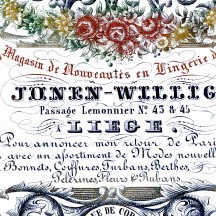 Magasin de Nouveautés en Lingerie
JONEN-WILLIG
Passage Lemonnier No. 43 & 45
LIEGE.
Pour annoncer mon retour de Pari
avec un assortiment de Modes nouvell
Bonnets, Coiffures, Turbans, Berthes,
Pélérines, Fleurs & Rubans.
DE CO